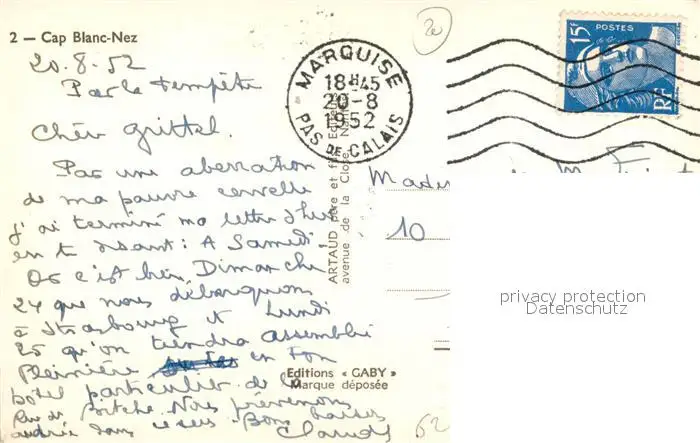 2 — Cap Blanc-Nez
20.8.52
Par la tempête
Chère Grittel.
Par une aberration
de ma pauvre cervelle
j'ai terminé ma lettre d'hier
en te disant : A Samedi.
Or c'est bien Dimanche
24 que nous débarquons
à Strasbourg et Lundi
25 qu'on tiendra assemblée
Pleinière en ton
hôtel particulier de la
Rue de Bitche. Nous prévenons
andrée dans ce sens. Bons baisers
Claude
MARQUISE
18H45
20-8
1952
PAS DE CALAIS
15F
POSTES
RF
ARTAUD père et fils, Editeurs
avenue de la Close, Nantes
Editions « GABY »
Marque déposée
10
privacy protection
Datenschutz
62